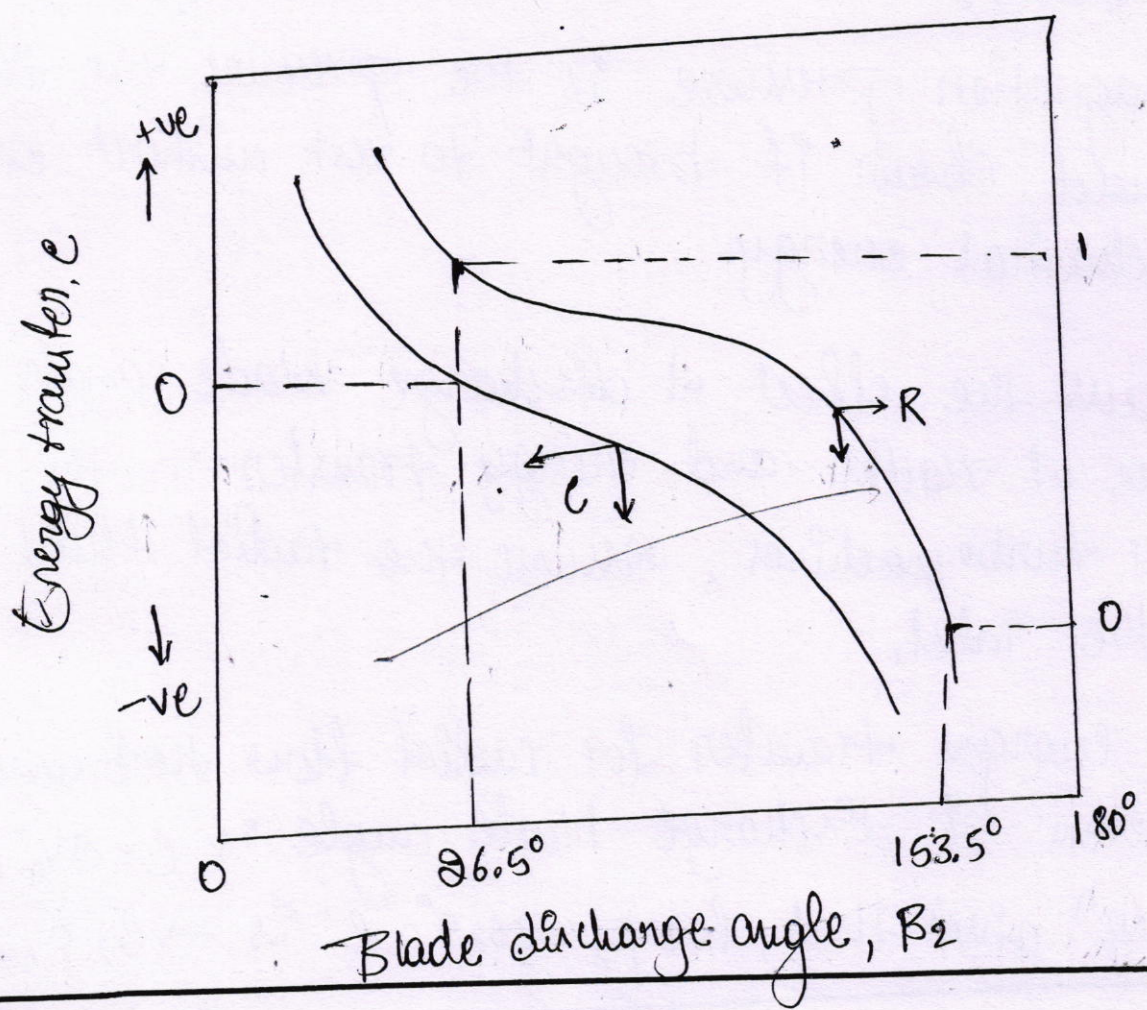 +ve
Energy transfer, e
0
-ve
1
R
e
0
0
26.5°
153.5°
180°
Blade discharge angle, B2